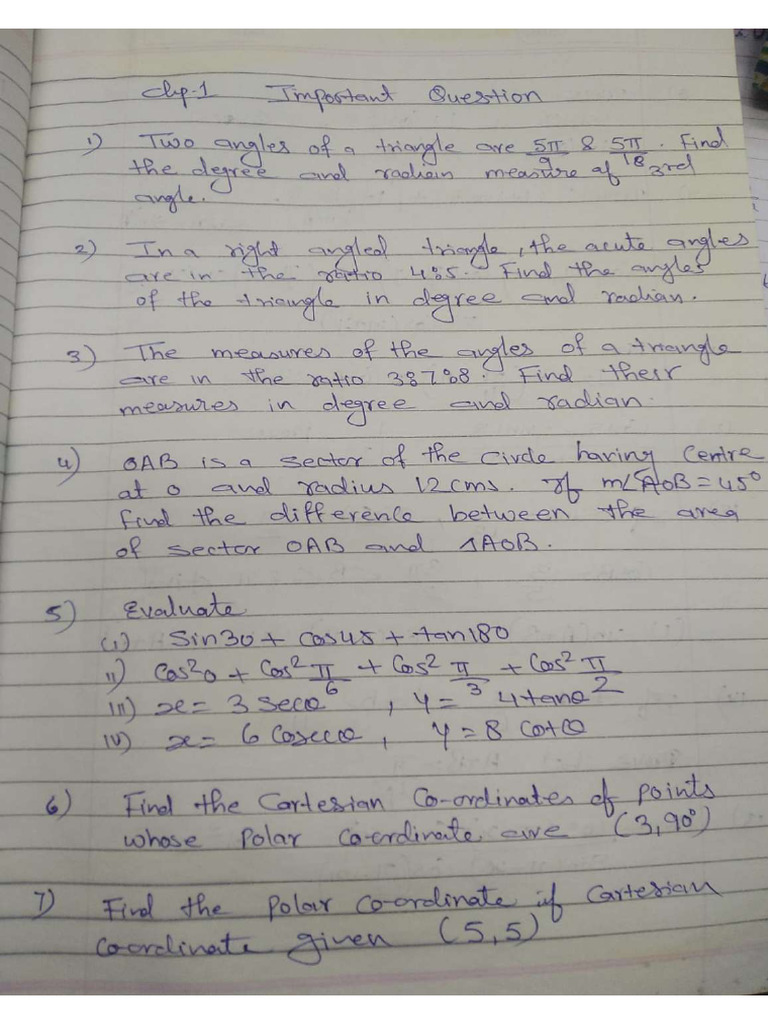 Chp-1 Important Question
1) Two angles of a triangle are 5π/9 & 5π/18. Find
the degree and radian measure of 3rd
angle.
2) In a right angled triangle, the acute angles
are in the ratio 4:5. Find the angles
of the triangle in degree and radian.
3) The measures of the angles of a triangle
are in the ratio 3:7:8. Find their
measures in degree and radian.
4) OAB is a sector of the circle having centre
at O and radius 12cms. If m∠AOB = 45°
Find the difference between the area
of sector OAB and ΔAOB.
5) Evaluate
(i) Sin30 + Cos45 + tan180
ii) Cos²0 + Cos² π/6 + Cos² π/3 + Cos² π/2
iii) x = 3 Secθ , y = 4 tanθ
iv) x = 6 Cosecθ , y = 8 Cotθ
6) Find the Cartesian Co-ordinates of points
whose Polar Co-ordinate are (3, 90°)
7) Find the polar co-ordinate if Cartesian
co-ordinate given (5,5)